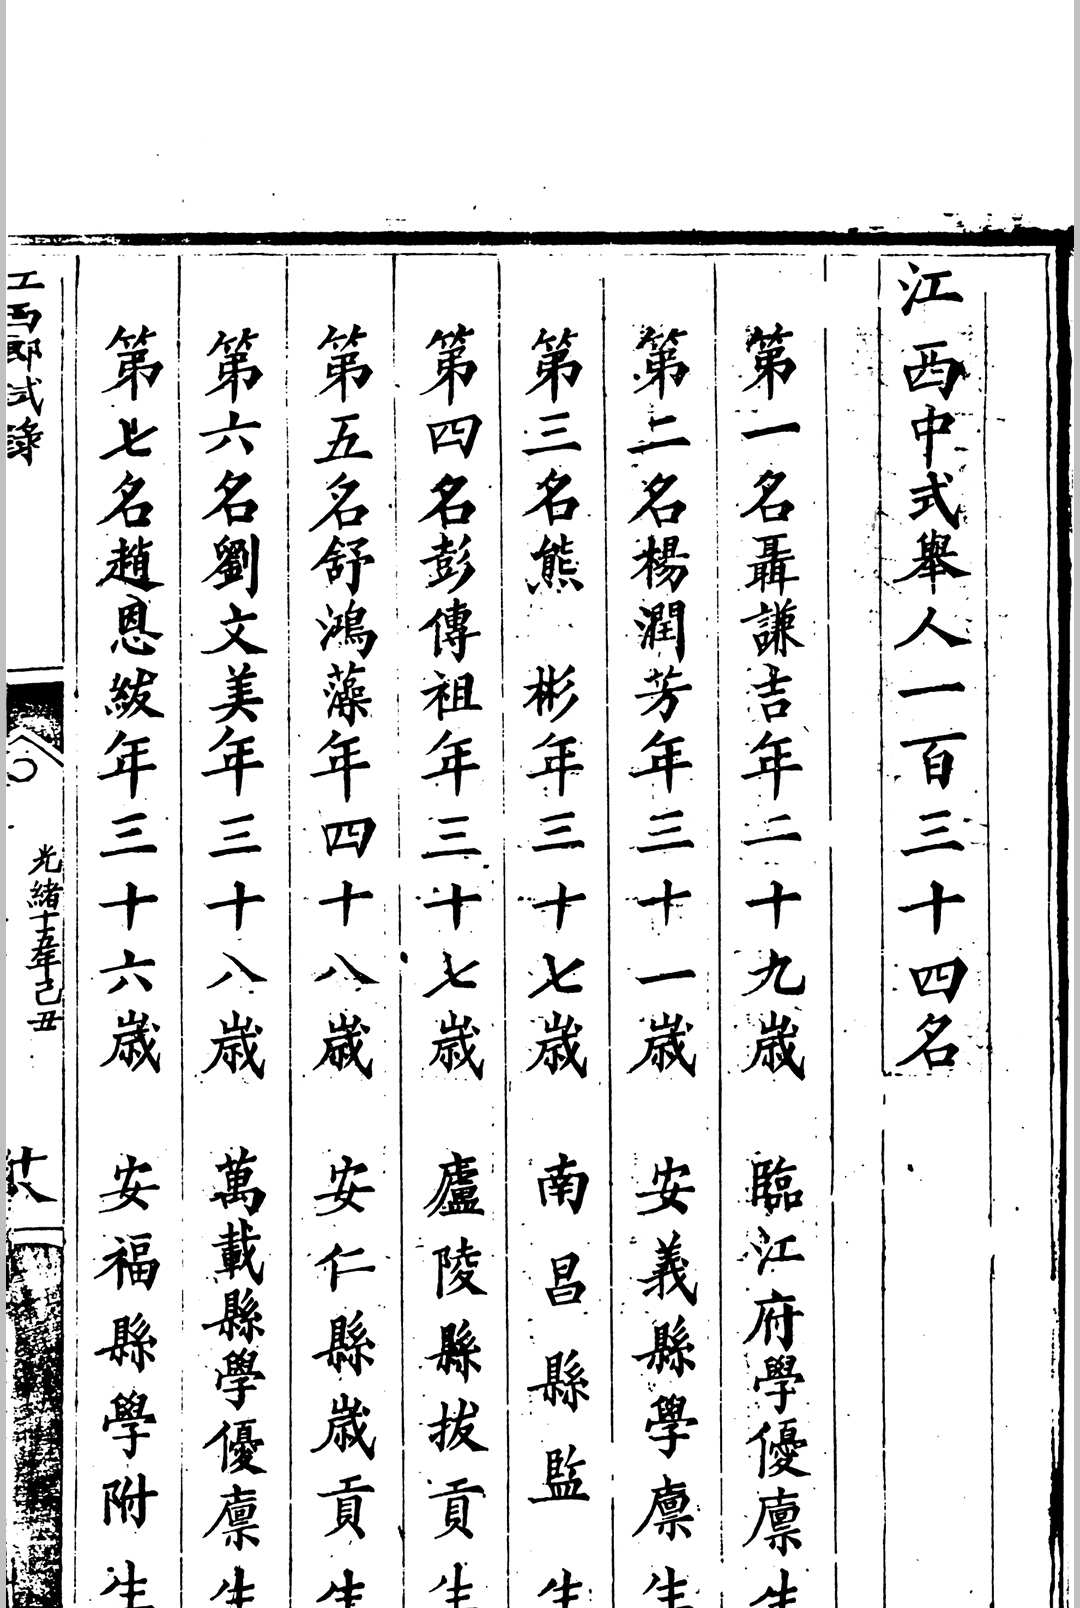 江西中式舉人一百三十四名
第一名聶謙吉年二十九歳 臨江府學優廪生
第二名楊潤芳年三十一歳 安義縣學廪生
第三名熊 彬年三十七歳 南昌縣監生
第四名彭傳祖年三十七歳 廬陵縣拔貢生
第五名舒鴻藻年四十八歳 安仁縣歳貢生
第六名劉文美年三十八歳 萬載縣學優廪生
第七名趙恩紱年三十六歳 安福縣學附生
江西鄉試錄
光緒十五年己丑
十八